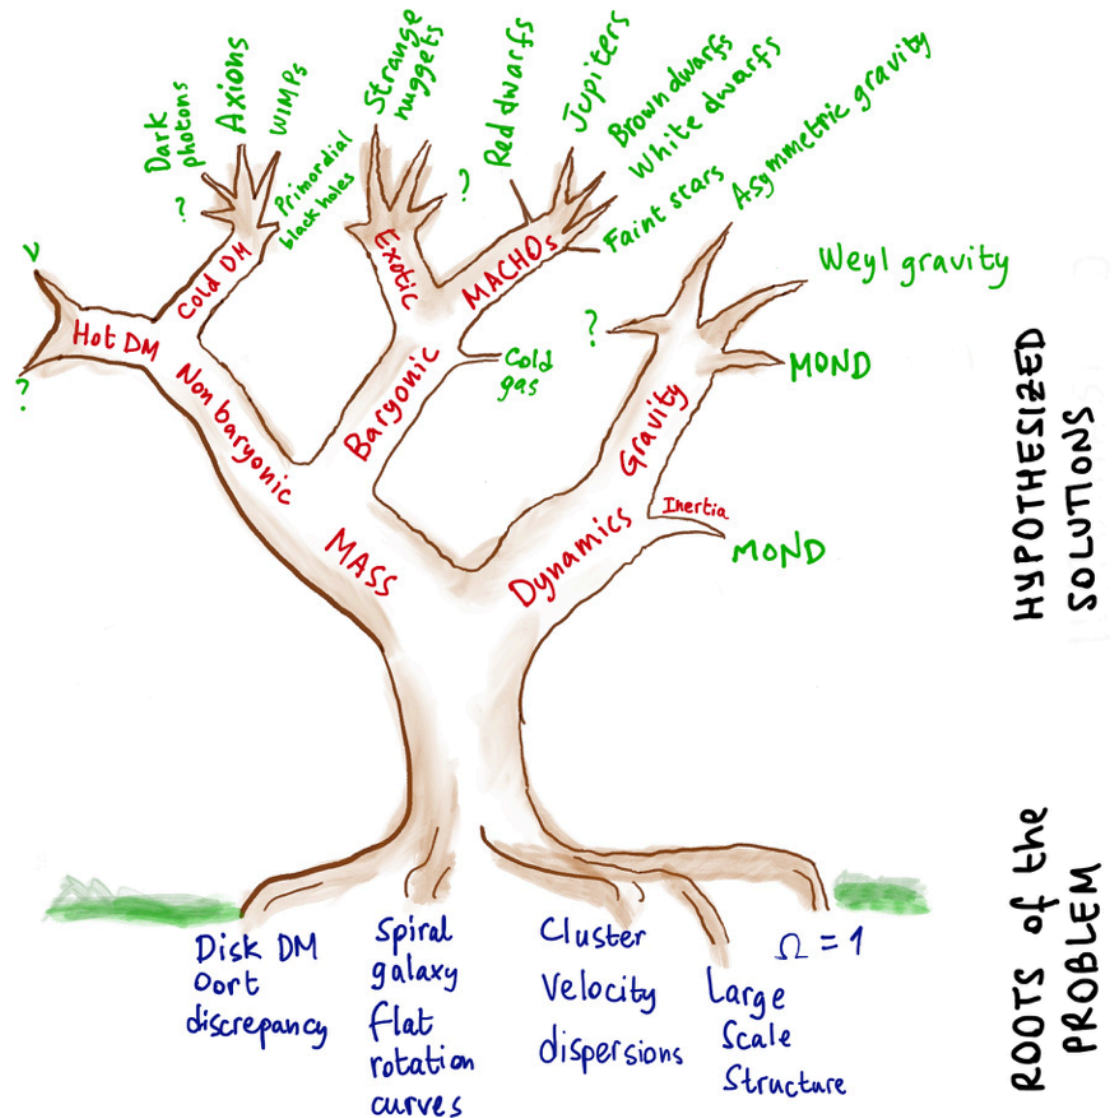 Dark
photons
Axions
WIMPs
Primordial
black holes
?
Strange
nuggets
?
Red dwarfs
Jupiters
Brown dwarfs
White dwarfs
Faint stars
Asymmetric gravity
Weyl gravity
?
MOND
ν
?
Hot DM
Cold DM
Non baryonic
Exotic
MACHOs
Baryonic
Cold
gas
MASS
Gravity
Inertia
MOND
Dynamics
HYPOTHESIZED
SOLUTIONS
Disk DM
Oort
discrepancy
Spiral
galaxy
flat
rotation
curves
Cluster
Velocity
dispersions
Large
Scale
Structure
Ω = 1
ROOTS of the
PROBLEM